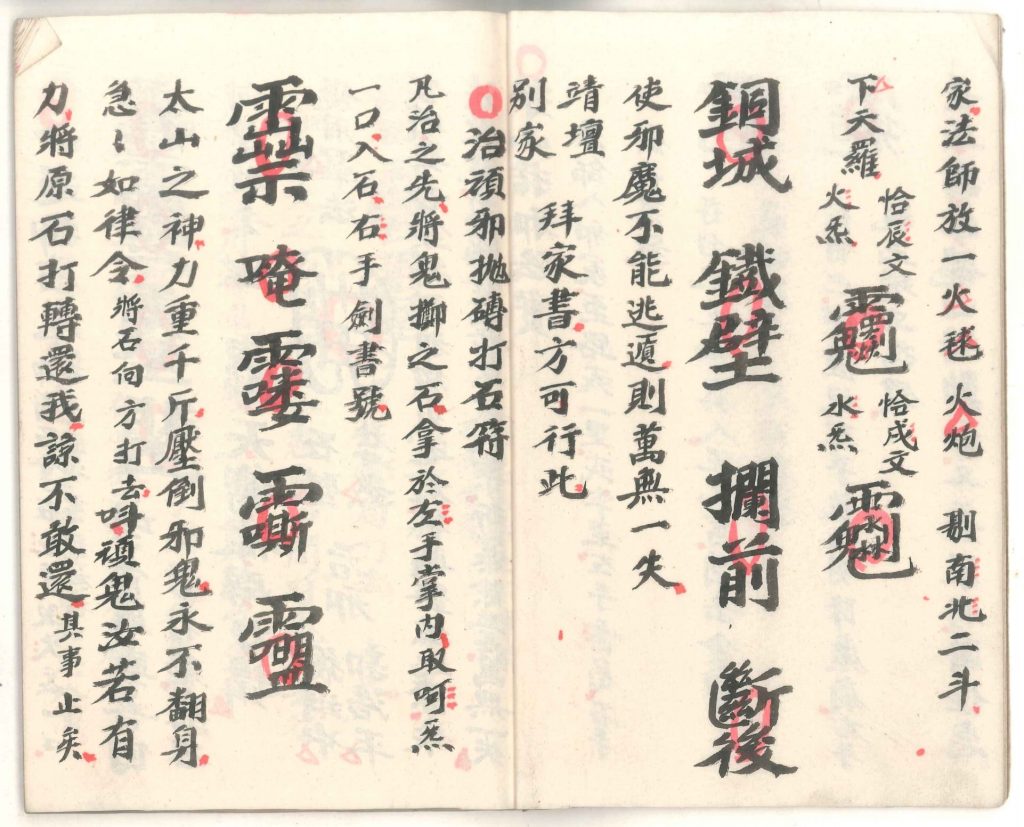 家法師放一火毬火炮 剔南北二斗
下天羅 恰辰文 火炁 恰戌文 水炁
銅城 鐵壁 攔前 斷後
使邪魔不能逃遁則萬無一失
靖壇 拜家書方可行此
別家
治頑邪拋磚打石符
凡治之先將鬼擲之石拿於左手掌內取呵炁
一口入石右手劍書號
唵
太山之神力重千斤壓倒邪鬼永不翻身
急〻如律令將石向方打去呌頑鬼汝若有
力將原石打轉還我諒不敢還其事止矣